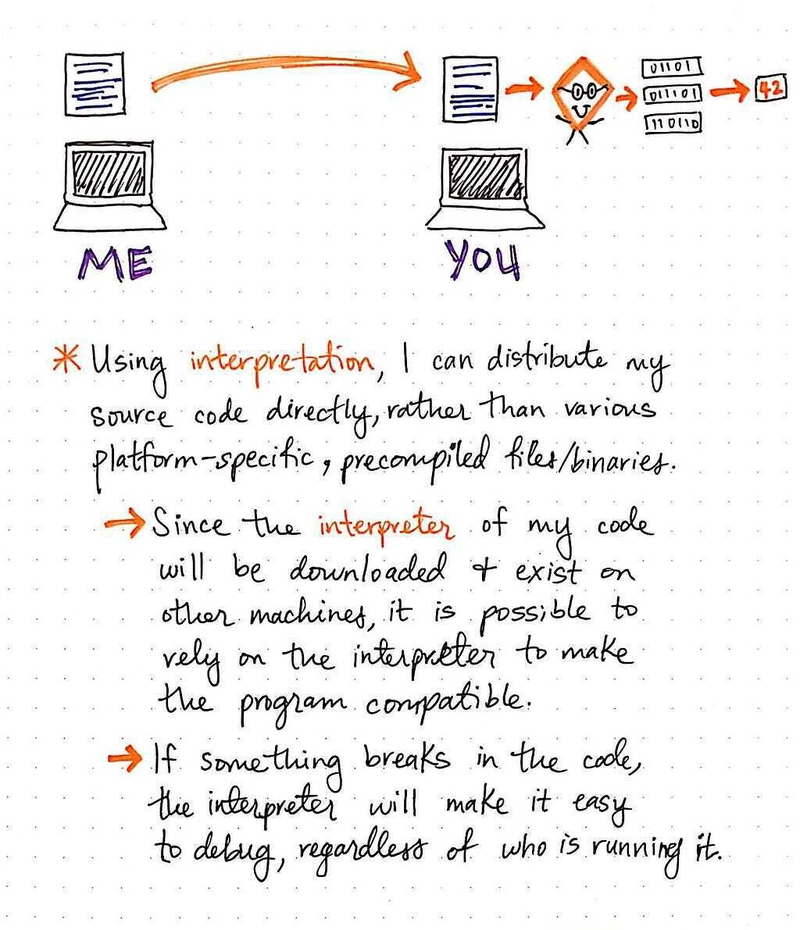 01101
011101
110110
42
ME
YOU
* Using interpretation, I can distribute my
source code directly, rather than various
platform-specific, precompiled files/binaries.
→ Since the interpreter of my code
will be downloaded + exist on
other machines, it is possible to
rely on the interpreter to make
the program compatible.
→ If something breaks in the code,
the interpreter will make it easy
to debug, regardless of who is running it.